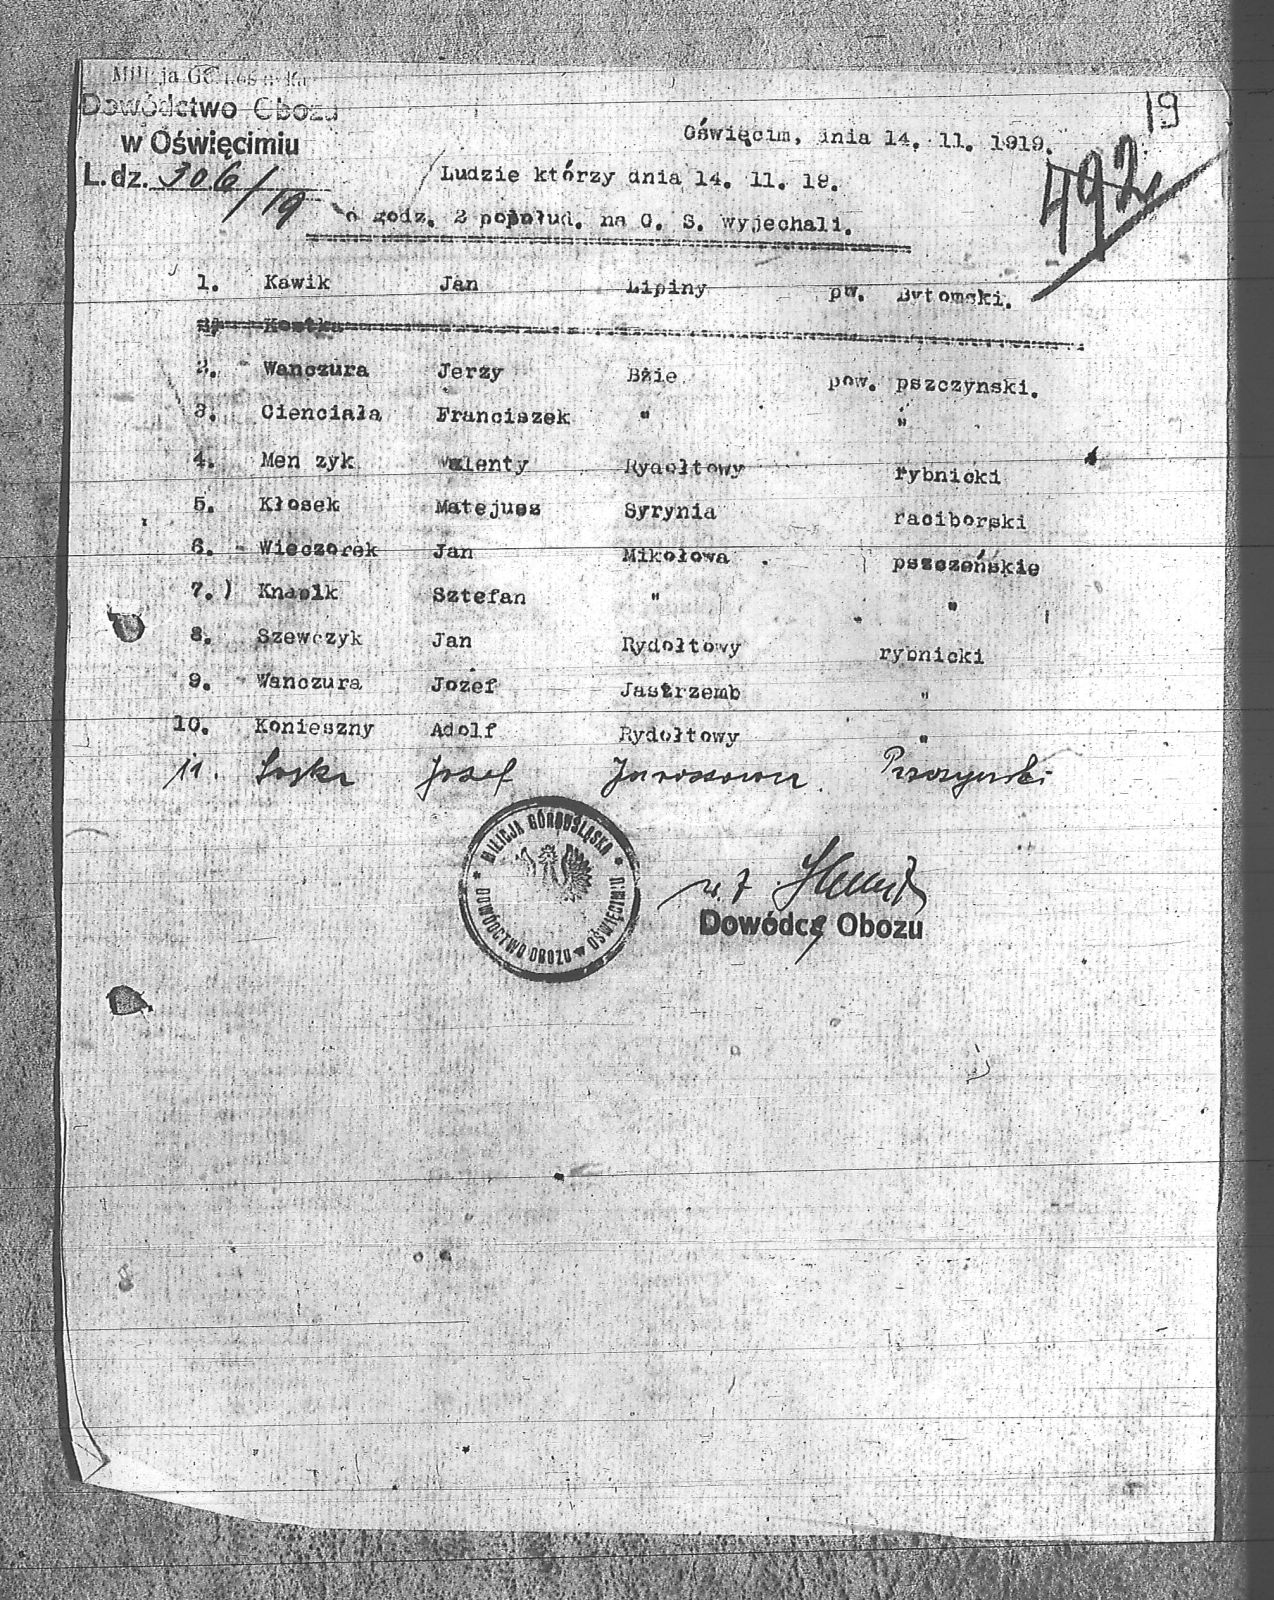 Milicja
Dowództwo Obozu
w Oświęcimiu
L. dz. 306/19
19
492
Oświęcim, dnia 14. 11. 1919.
Ludzie którzy dnia 14. 11. 19.
o godz. 2 popołud. na G. S. wyjechali.
1. Kawik Jan Lipiny pw. Bytomski.
Kostka
2. Wanczura Jerzy Bzie pow. pszczynski.
3. Cienciała Franciszek " "
4. Men zyk Walenty Rydołtowy rybnicki
5. Kłosek Matejusz Syrynia raciborski
6. Wieczorek Jan Mikołowa pszczeńskie
7.) Knasik Sztefan " "
8. Szewczyk Jan Rydołtowy rybnicki
9. Wanczura Jozef Jastrzemb "
10. Konieszny Adolf Rydołtowy "
11. Josef Pszczynski
MILICJA GÓRNOŚLĄSKA
DOWÓDZTWO OBOZU w OŚWIĘCIMIU
Dowódca Obozu